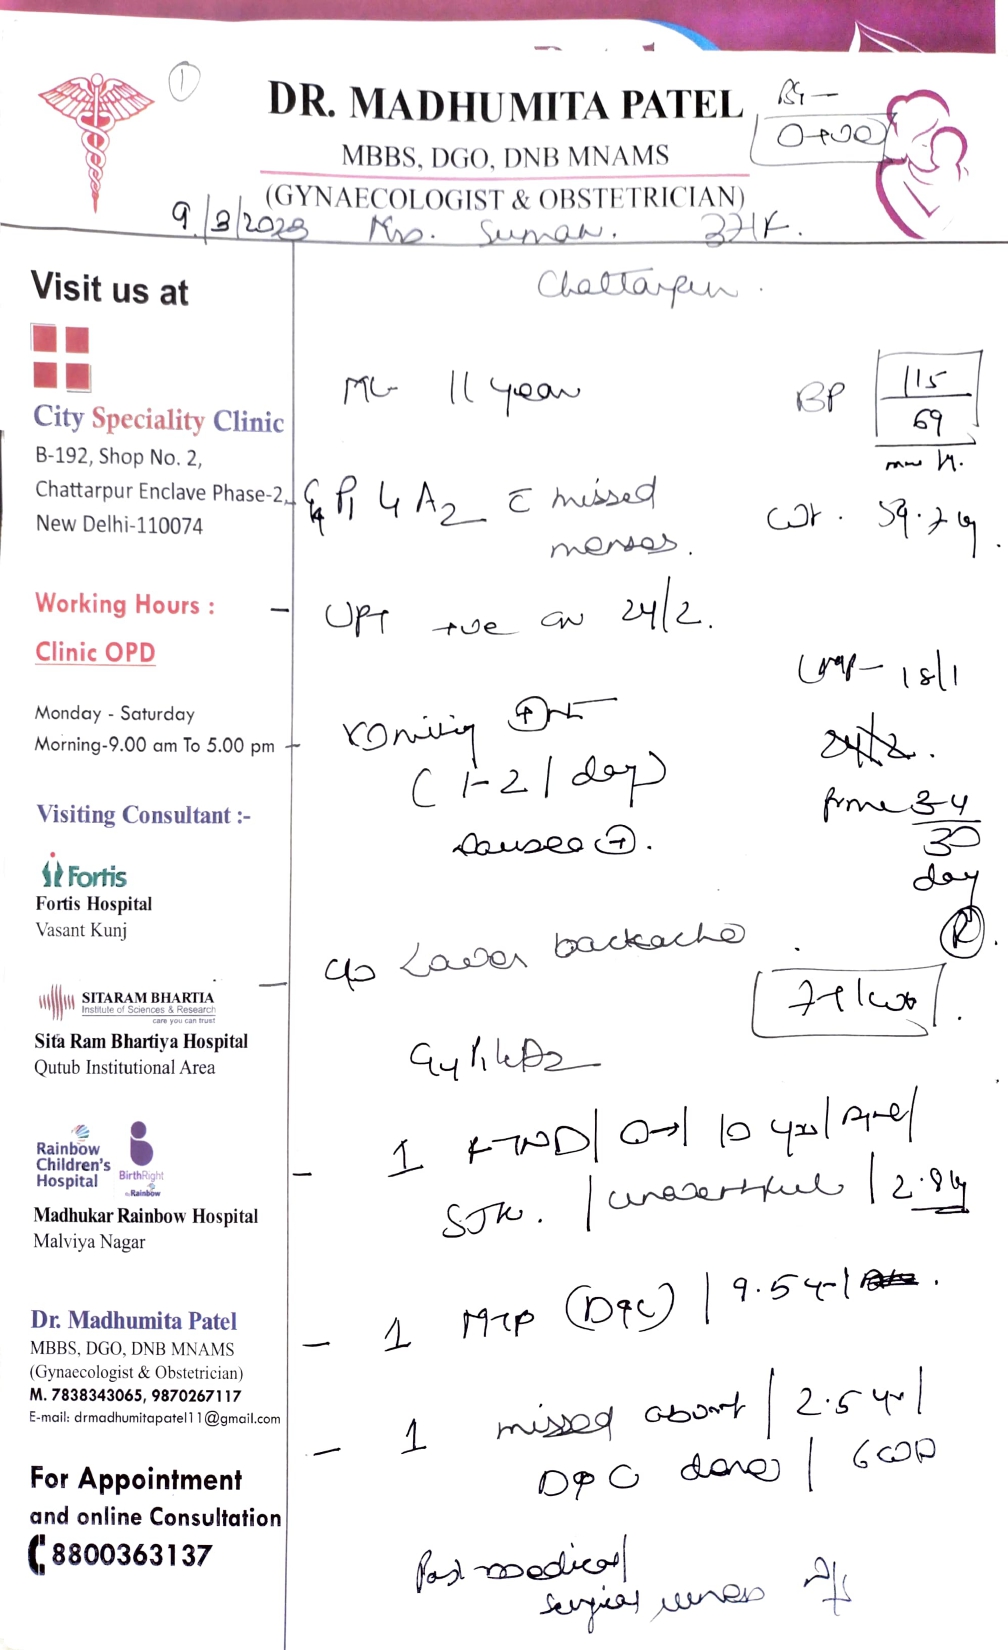 ①
DR. MADHUMITA PATEL
MBBS, DGO, DNB MNAMS
(GYNAECOLOGIST & OBSTETRICIAN)
BG -
O+ve
Mrs. Suman.
Chattarpur.
Visit us at
City Speciality Clinic
B-192, Shop No. 2,
Chattarpur Enclave Phase-2,
New Delhi-110074
Working Hours :
Clinic OPD
Monday - Saturday
Morning-9.00 am To 5.00 pm
Visiting Consultant :-
Fortis
Fortis Hospital
Vasant Kunj
SITARAM BHARTIA
Institute of Sciences & Research
care you can trust
Sita Ram Bhartiya Hospital
Qutub Institutional Area
Rainbow
Children's
Hospital
BirthRight
by Rainbow
Madhukar Rainbow Hospital
Malviya Nagar
Dr. Madhumita Patel
MBBS, DGO, DNB MNAMS
(Gynaecologist & Obstetrician)
M. 7838343065, 9870267117
E-mail: drmadhumitapatel11@gmail.com
For Appointment
and online Consultation
8800363137
11 year
BP 115
69
mm
G4 P1 L1 A2 c missed
menses.
Wt. 59.7 kg
- UPT +ve on 24/2.
LMP - 18/1
- Vomiting +
(1-2 / day)
Nausea +.
3-4
30
day
R.
- c/o Lower backache.
G4P1L1A2
- 1 FTND / 10 yrs /
/ uneventful / 2.8 kg
- 1 MTP (D&C) / 9.5 yr /
- 1 missed abort / 2.5 yr /
D&C done /
Past medical /
surgical illness